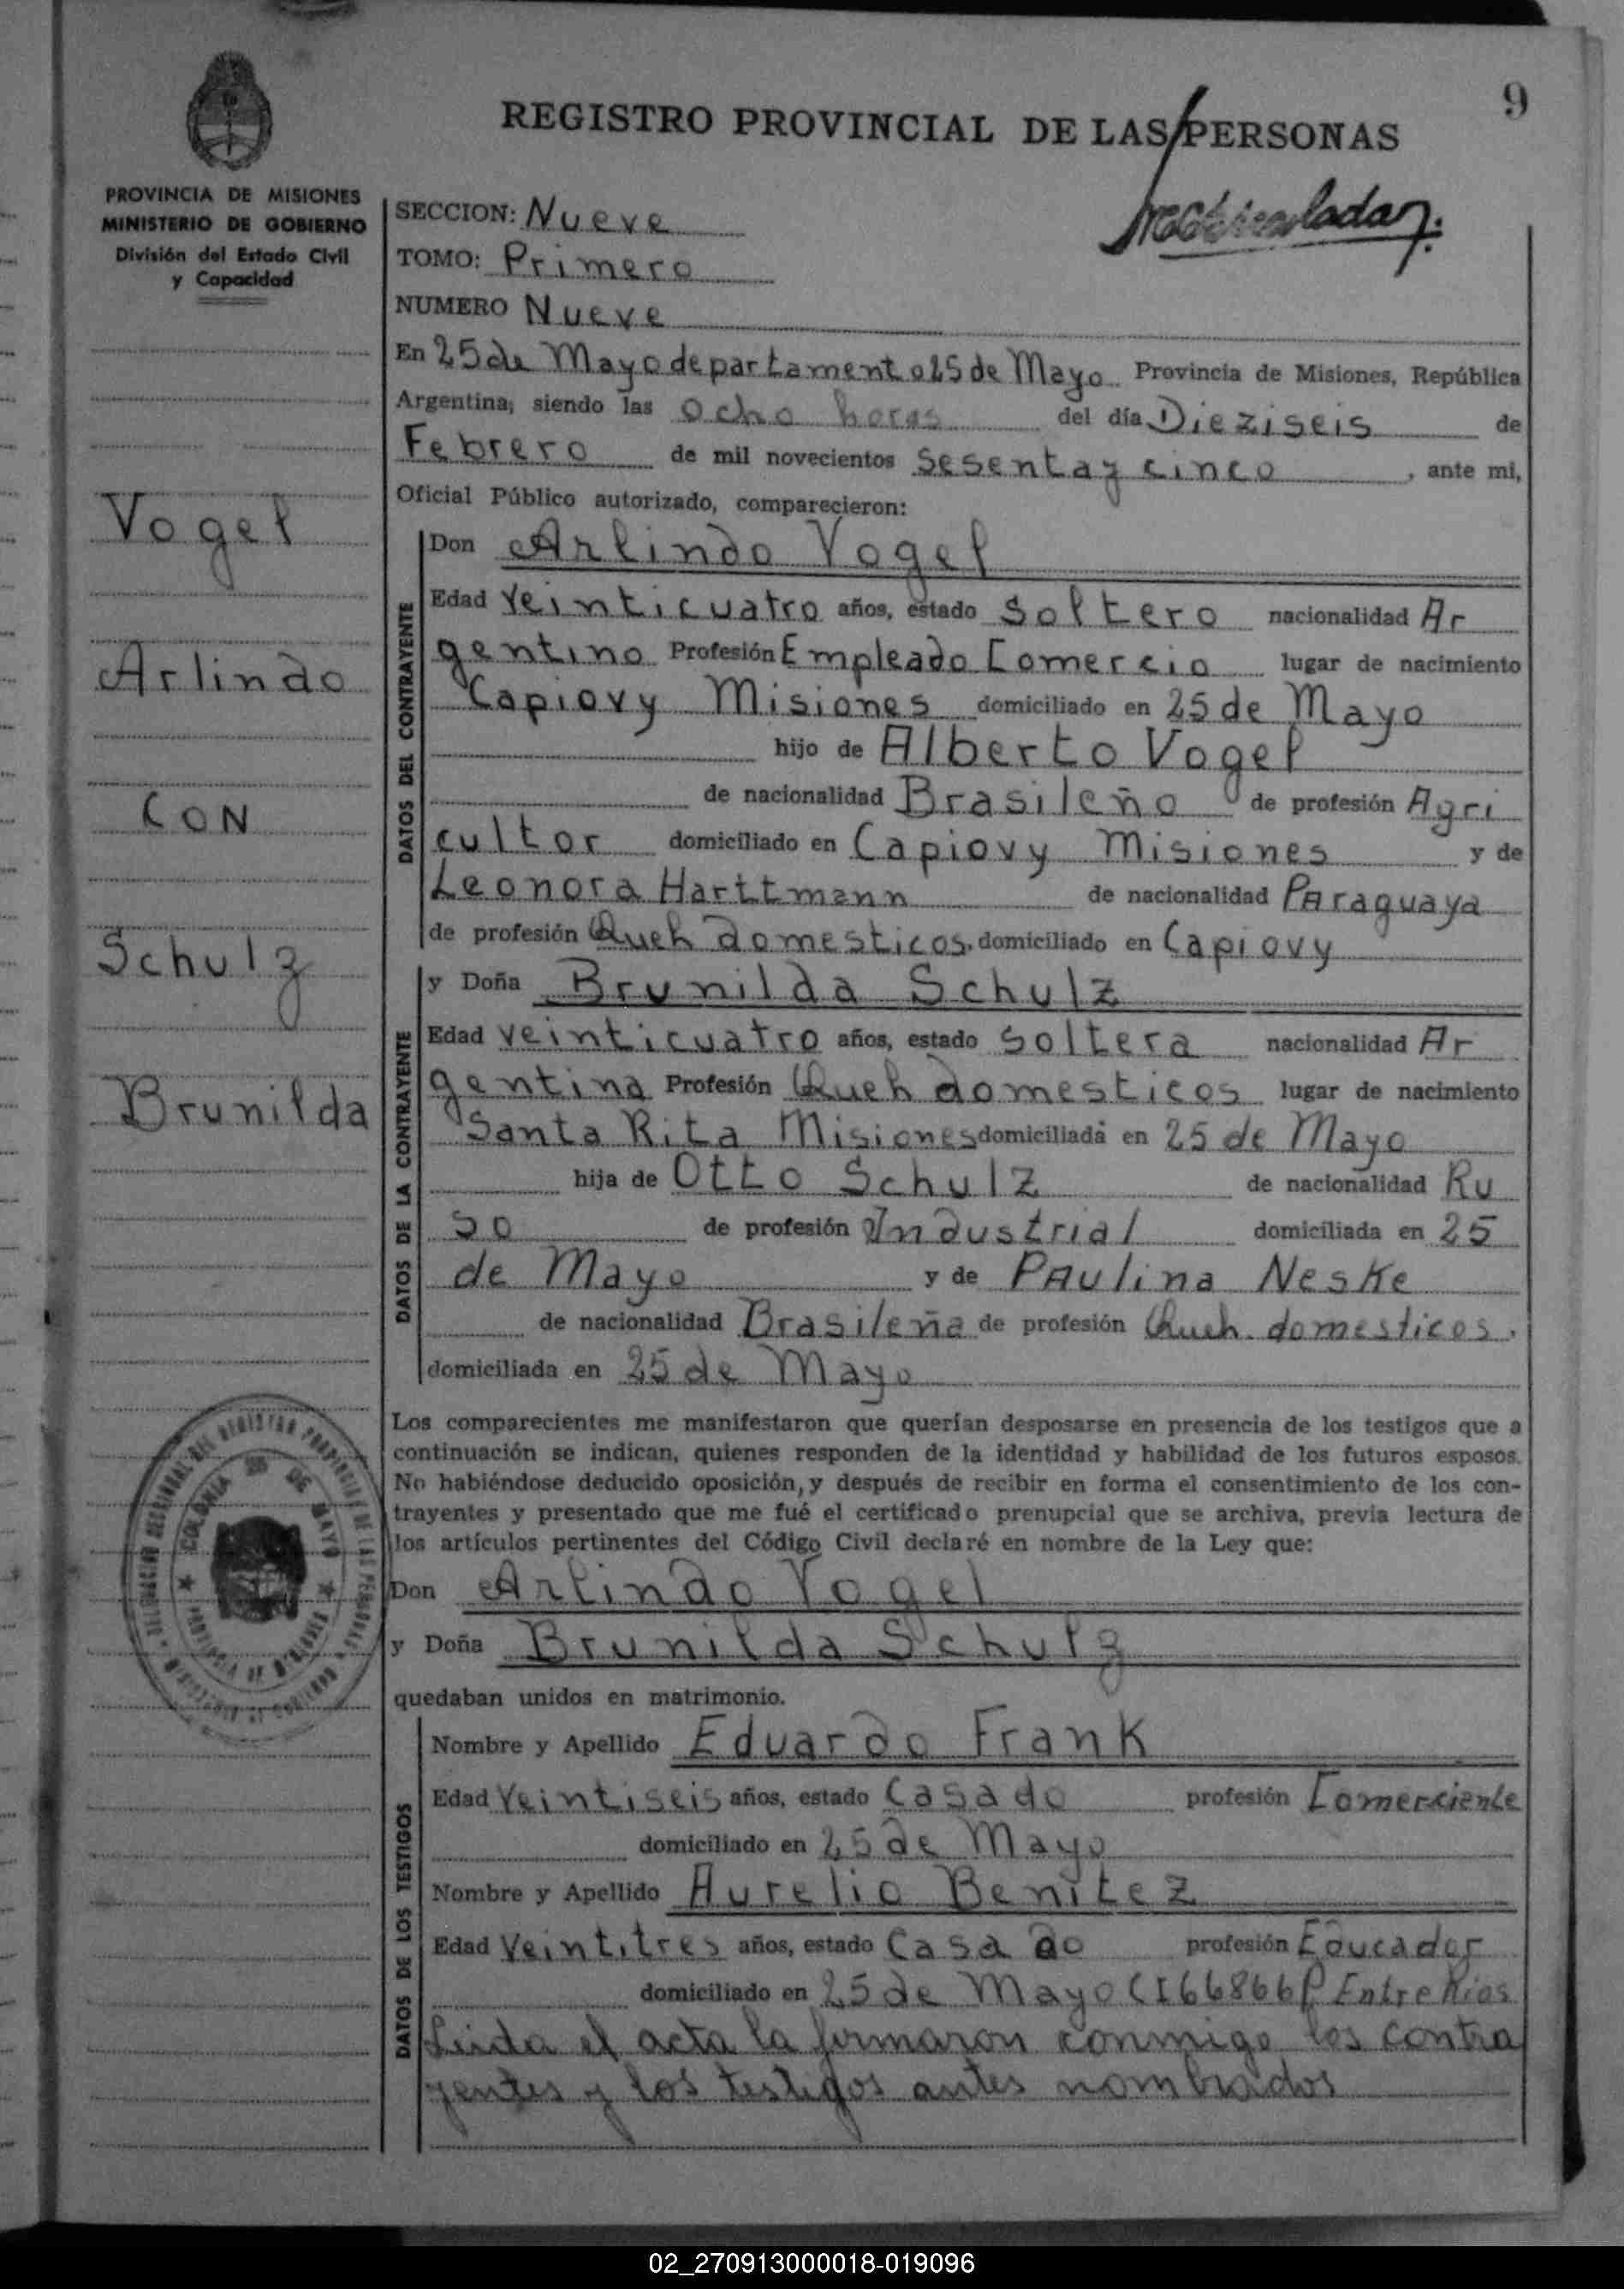 9
REGISTRO PROVINCIAL DE LAS PERSONAS
PROVINCIA DE MISIONES
MINISTERIO DE GOBIERNO
División del Estado Civil
y Capacidad
SECCION: Nueve
TOMO: Primero
NUMERO Nueve
En 25 de Mayo departamento 25 de Mayo Provincia de Misiones, República
Argentina; siendo las ocho horas del día Dieziseis de
Febrero de mil novecientos Sesenta y cinco, ante mi,
Oficial Público autorizado, comparecieron:
Vogel
Arlindo
CON
Schulz
Brunilda
DATOS DEL CONTRAYENTE
Don Arlindo Vogel
Edad Veinticuatro años, estado Soltero nacionalidad Ar
gentino Profesión Empleado Comercio lugar de nacimiento
Capiovy Misiones domiciliado en 25 de Mayo
hijo de Alberto Vogel
de nacionalidad Brasileño de profesión Agri
cultor domiciliado en Capiovy Misiones y de
Leonora Harttmann de nacionalidad Paraguaya
de profesión Queh domesticos, domiciliado en Capiovy
DATOS DE LA CONTRAYENTE
y Doña Brunilda Schulz
Edad Veinticuatro años, estado Soltera nacionalidad Ar
gentina Profesión Queh domesticos lugar de nacimiento
Santa Rita Misiones domiciliada en 25 de Mayo
hija de Otto Schulz de nacionalidad Ru
so de profesión Industrial domiciliada en 25
de Mayo y de Paulina Neske
de nacionalidad Brasileña de profesión Queh domesticos.
domiciliada en 25 de Mayo
Los comparecientes me manifestaron que querían desposarse en presencia de los testigos que a
continuación se indican, quienes responden de la identidad y habilidad de los futuros esposos.
No habiéndose deducido oposición, y después de recibir en forma el consentimiento de los con-
trayentes y presentado que me fué el certificado prenupcial que se archiva, previa lectura de
los artículos pertinentes del Código Civil declaré en nombre de la Ley que:
Don Arlindo Vogel
y Doña Brunilda Schulz
quedaban unidos en matrimonio.
COLONIA 25 DE MAYO
PROVINCIA DE MISIONES
DATOS DE LOS TESTIGOS
Nombre y Apellido Eduardo Frank
Edad Veintiseis años, estado Casado profesión Comerciente
domiciliado en 25 de Mayo
Nombre y Apellido Aurelio Benitez
Edad Veintitres años, estado Casado profesión Educador
domiciliado en 25 de Mayo CI 66866 P Entre Rios
Leida el acta la firmaron conmigo los contra
yentes y los testigos antes nombrados
02_270913000018-019096